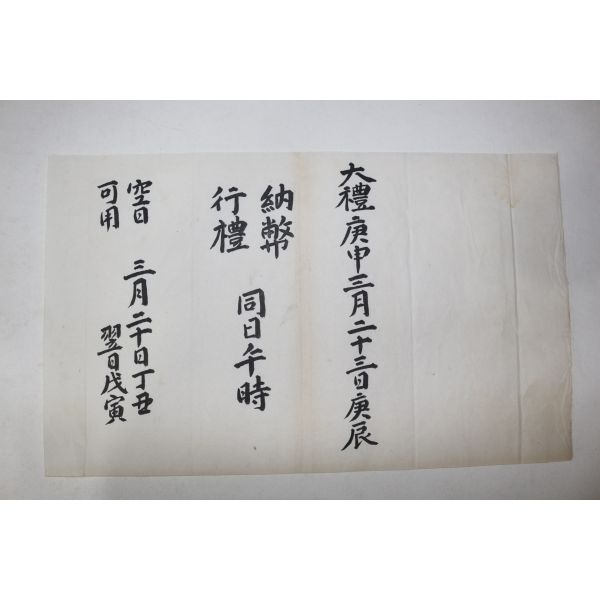 大禮庚申三月二十三日庚辰
納幣
行禮
同日午時
空日
可用
三月二十日丁丑
翌日戊寅